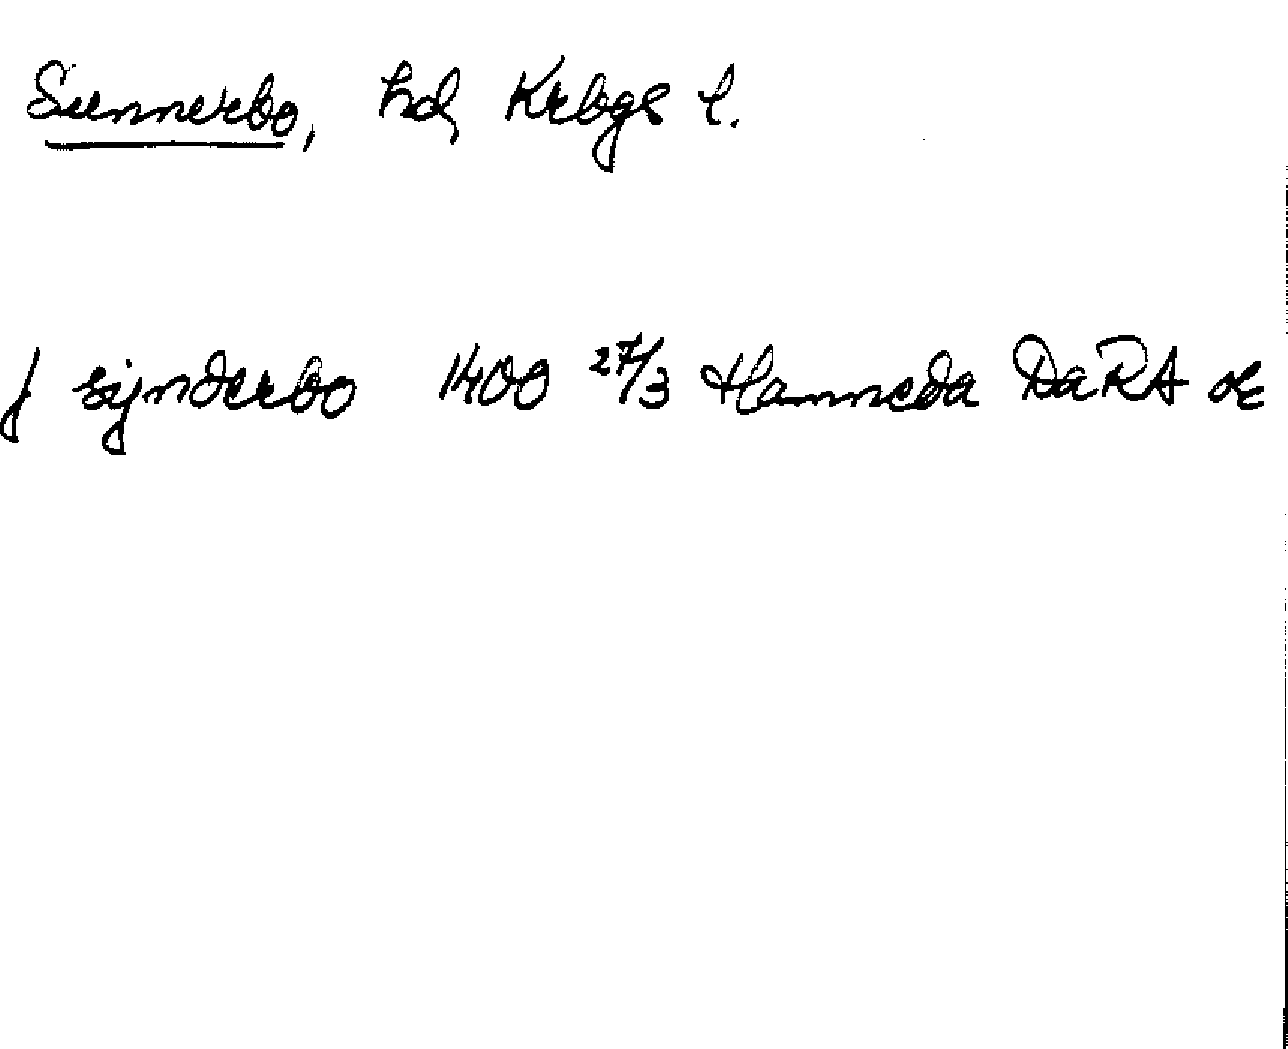 Sunnerbo, hd, Krbgs l.
j sijnderbo 1400 27/3 Hamneda DaRA or